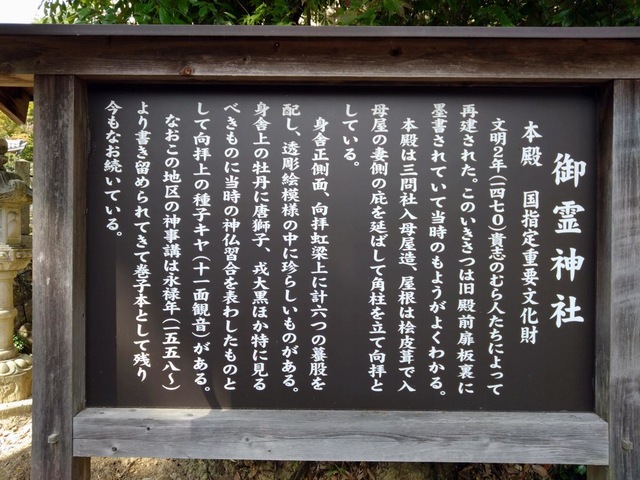 御霊神社
本殿　国指定重要文化財
文明２年（一四七〇）貴志のむら人たちによって
再建された。このいきさつは旧殿前扉板裏に
墨書されていて当時のもようがよくわかる。
本殿は三間社入母屋造、屋根は桧皮葺で入
母屋の妻側の庇を延ばして角柱を立て向拝と
している。
身舎正側面、向拝虹梁上に計六つの蟇股を
配し、透彫絵模様の中に珍らしいものがある。
身舎上の牡丹に唐獅子、戎大黒ほか特に見る
べきものに当時の神仏習合を表わしたものと
して向拝上の種子キヤ（十一面観音）がある。
なおこの地区の神事講は永禄年（一五五八〜）
より書き留められてきて巻子本として残り
今もなお続いている。